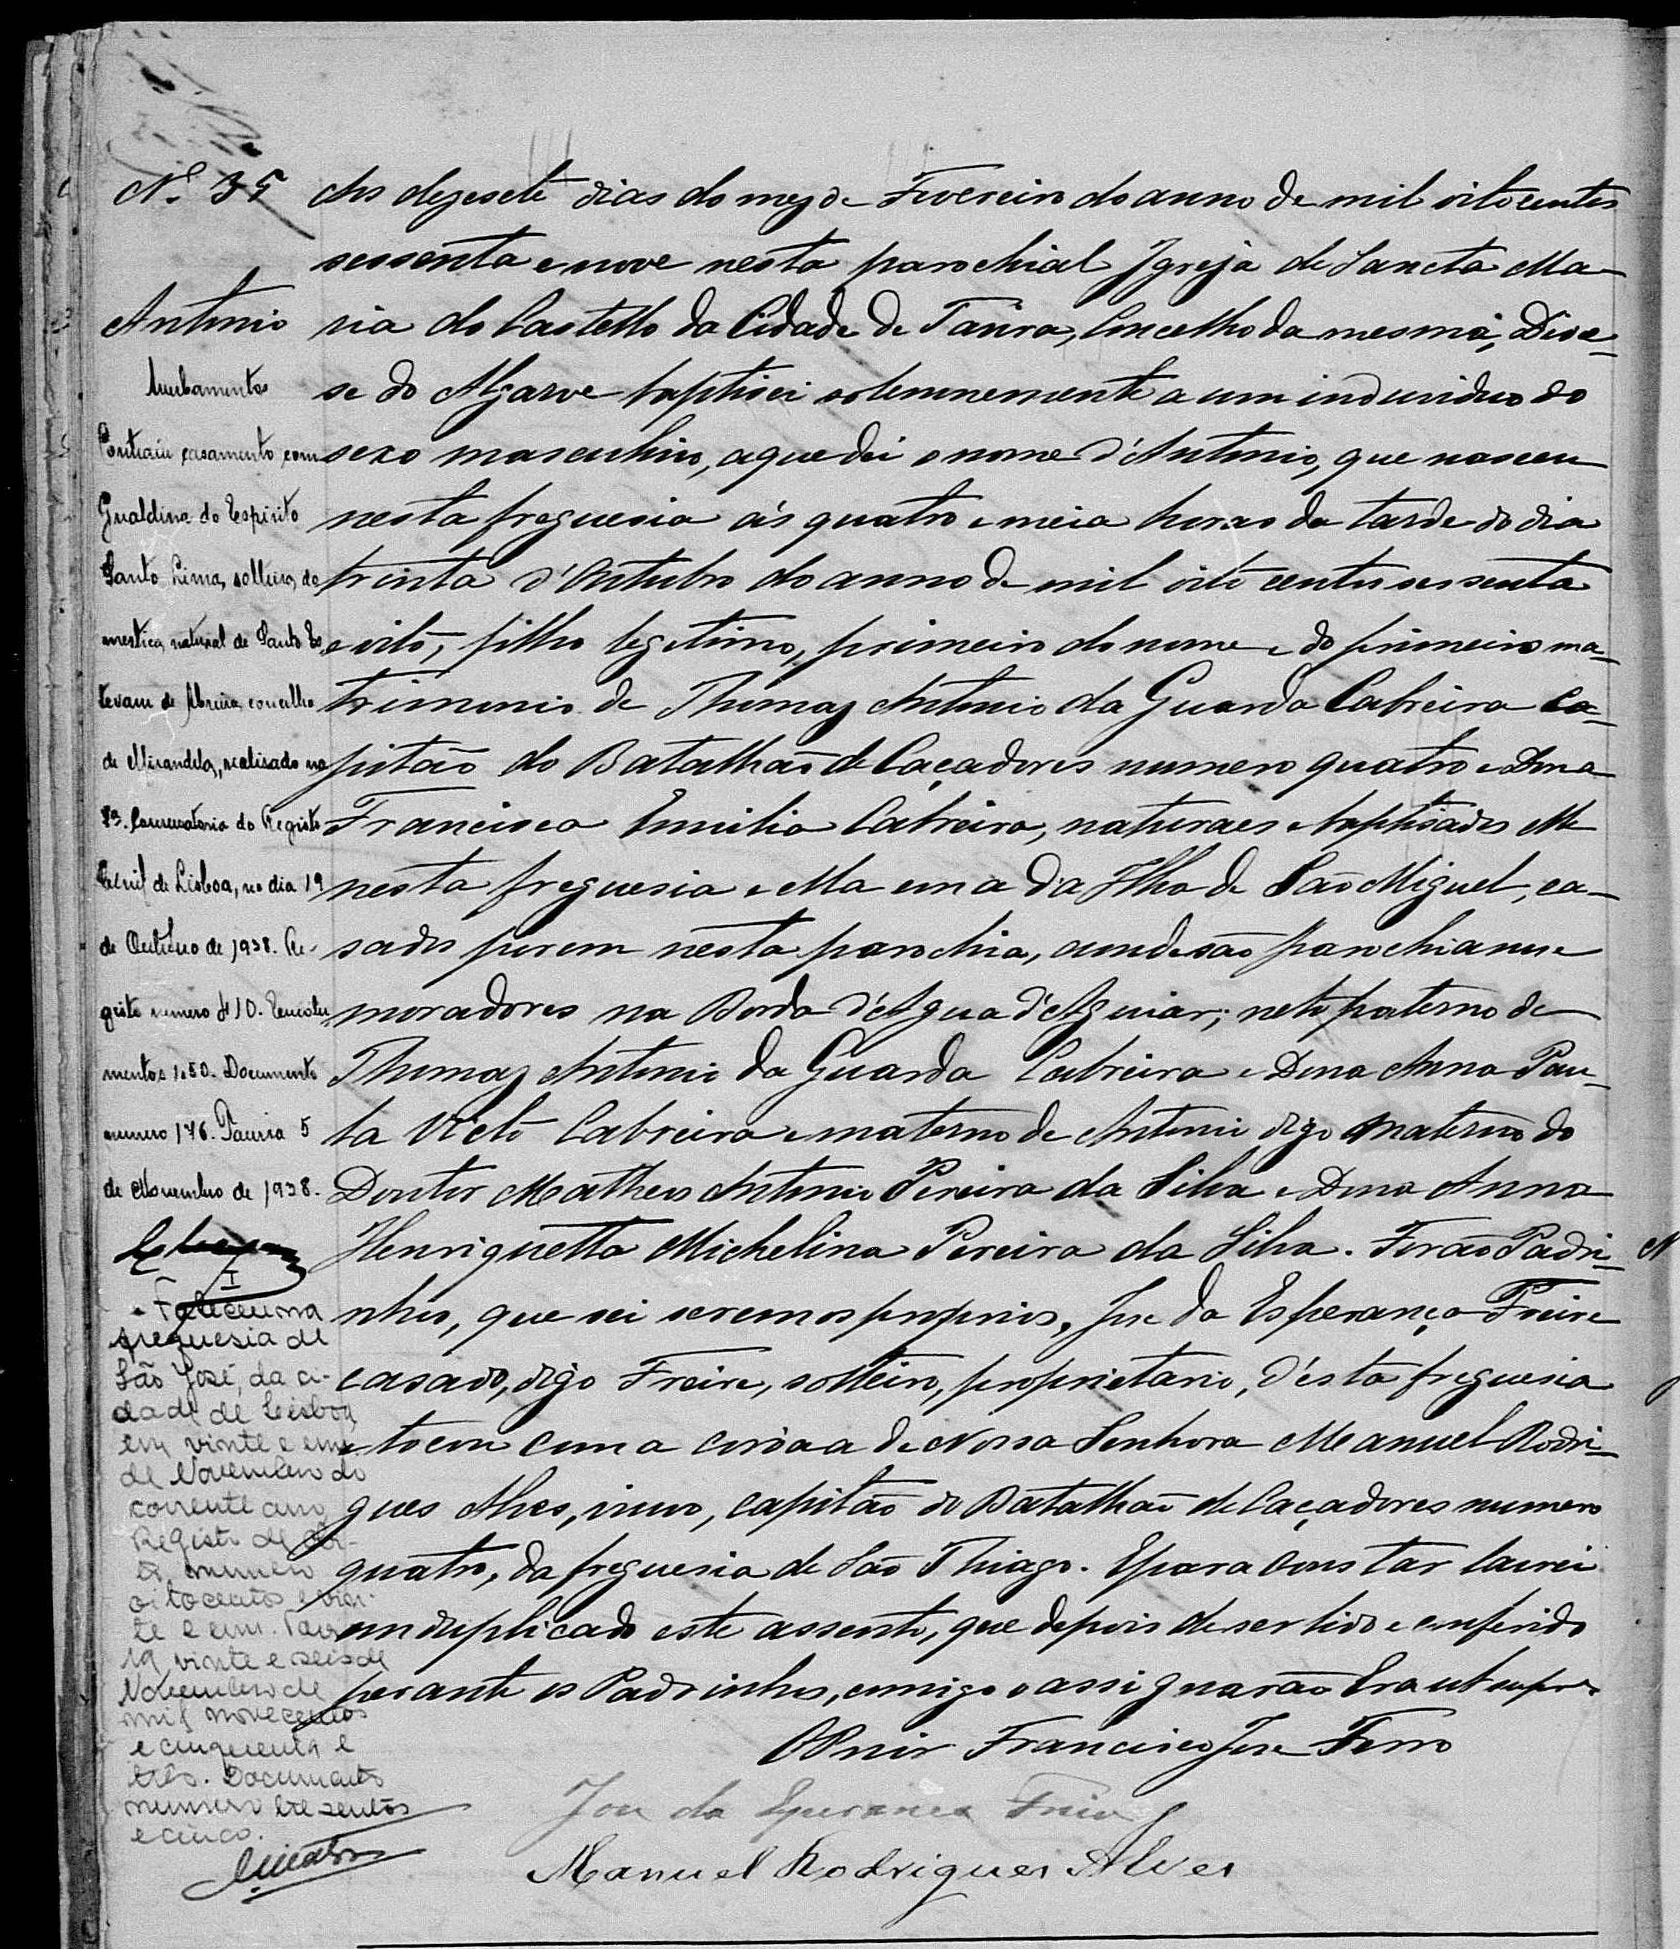 Nº 35
Antonio
Averbamentos
Contraiu casamento com
Gualdina do Espirito
Santo Lima, solteira, do
mestica, natural de Santo Es
tevam de Abreiro, concelho
de Mirandela, realisado na
8ª. Conservatoria do Registo
Civil de Lisboa, no dia 19
de Outubro de 1938. Re-
gisto numero 410. Emolu
mentos 1$50. Documento
numero 176. Tavira 5
de Novembro de 1938.
Faleceu na
freguesia de
São José, da ci-
dade de Lisboa
em vinte e um
de Novembro do
corrente ano
Registo de óbi-
to numero
oitocentos e vin-
te e um. Tavi
ra, vinte e seis de
Novembro de
mil novecentos
e cinquenta e
três. Documento
numero tresentos
e cinco.
Aos dezesete dias do mez de Fevereiro do anno de mil oitocentos
sessenta e nove nesta parochial Igreja de Sancta Ma-
ria do Castello da Cidade de Tavira, Concelho da mesma, Dioce-
se do Algarve baptisei solemnemente a um individuo do
sexo masculino, a que dei o nome d'Antonio, que nasceu
nesta freguesia ás quatro e meia horas da tarde do dia
trinta d'Outubro do anno de mil oito centos sessenta
e oito, filho legitimo, primeiro do nome e do primeiro ma-
trimonio de Thomaz Antonio da Guarda Cabreira Ca-
pitão do Batalhão de Caçadores numero quatro e Dona
Francisca Emilia Cabreira, naturaes e baptisados elle
nesta freguesia e ella em a da Ilha de São Miguel, ca-
sados porem nesta parochia, aonde são parochianos e
moradores na Borda d'Agua d'Aguiar; neto paterno de
Thomaz Antonio da Guarda Cabreira e Dona Anna Pau-
la Victo Cabreira e materno de Antonio digo materno do
Doutor Matheus Antonio Pereira da Silva e Dona Anna
Henriquetta Michelina Pereira da Silva. Forão Padri-
nhos, que sei serem os proprios, Jose da Esperança Freire
casado, digo Freire, solteiro, proprietario, d'ésta freguesia
e tocou com a corôa a de Nossa Senhora Manuel Rodri-
gues Alves, viuvo, capitão do Batalhão de Caçadores numero
quatro, da freguesia de São Thiago. E para constar lavrei
em duplicado este assento, que depois de ser lido e conferido
perante os Padrinhos, comigo o assignarão Era ut supra
O Prior Francisco Jose Ferro
Jose da Esperança Freire
Manuel Rodrigues Alves